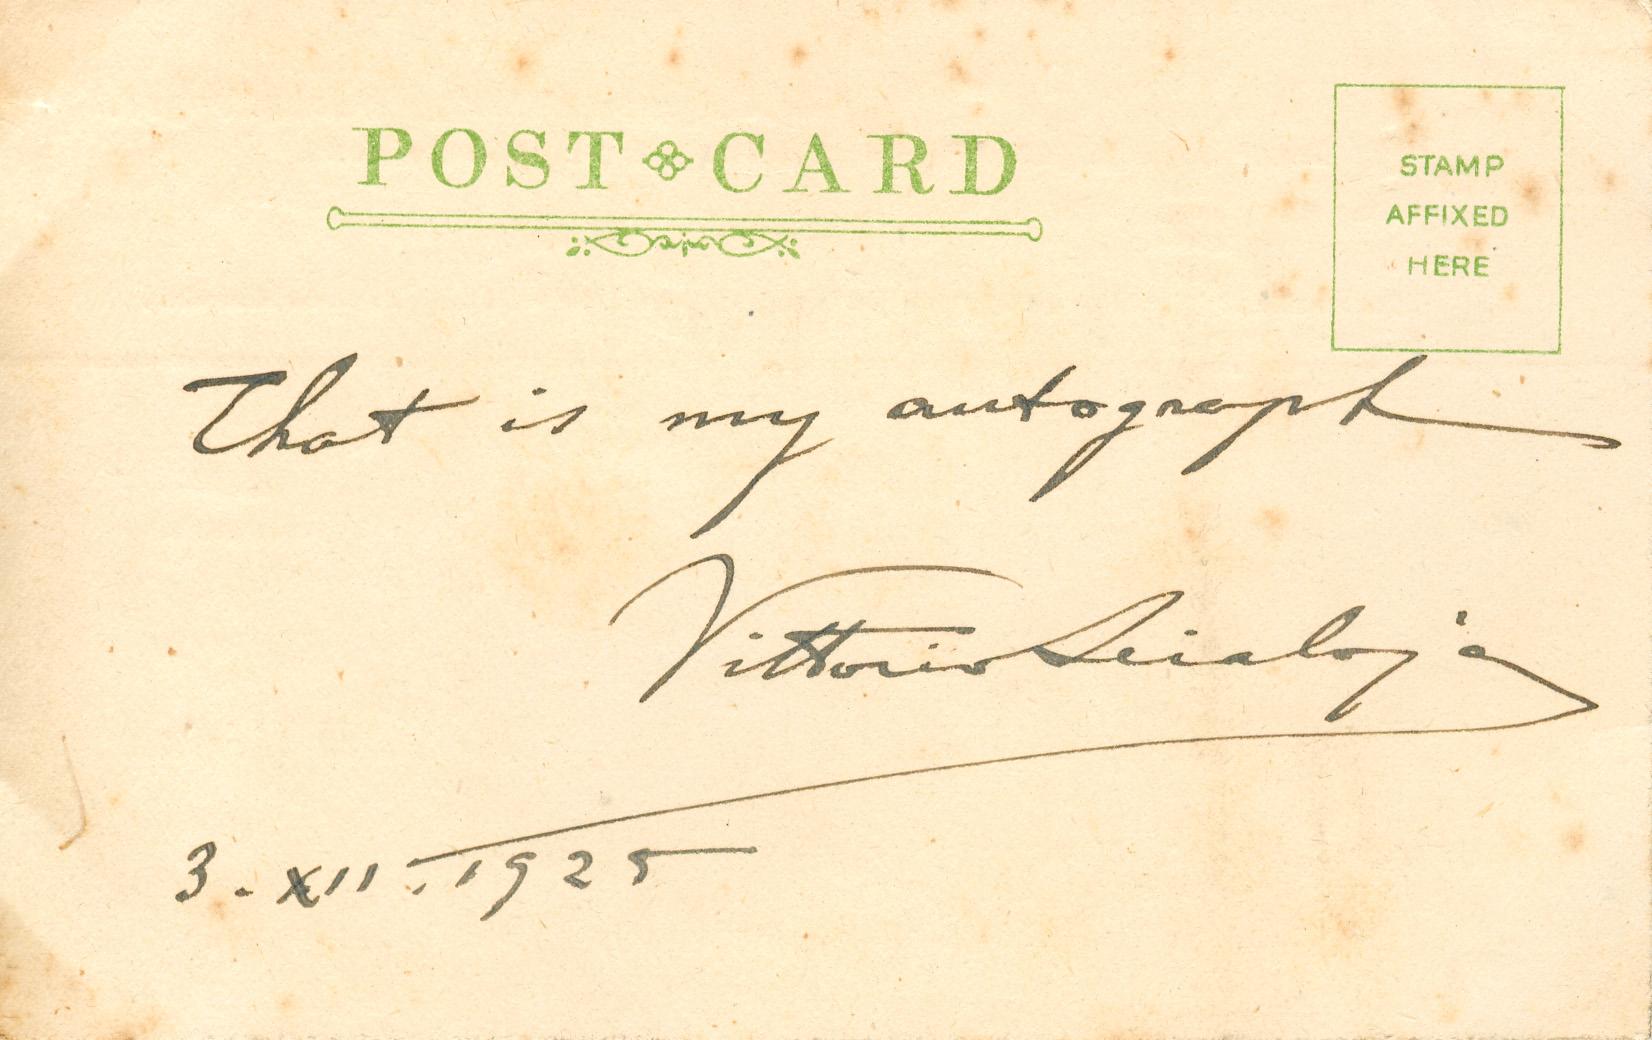 POST CARD
STAMP
AFFIXED
HERE
That is my autograph
Vittorio Scialoja
3. XII. 1925